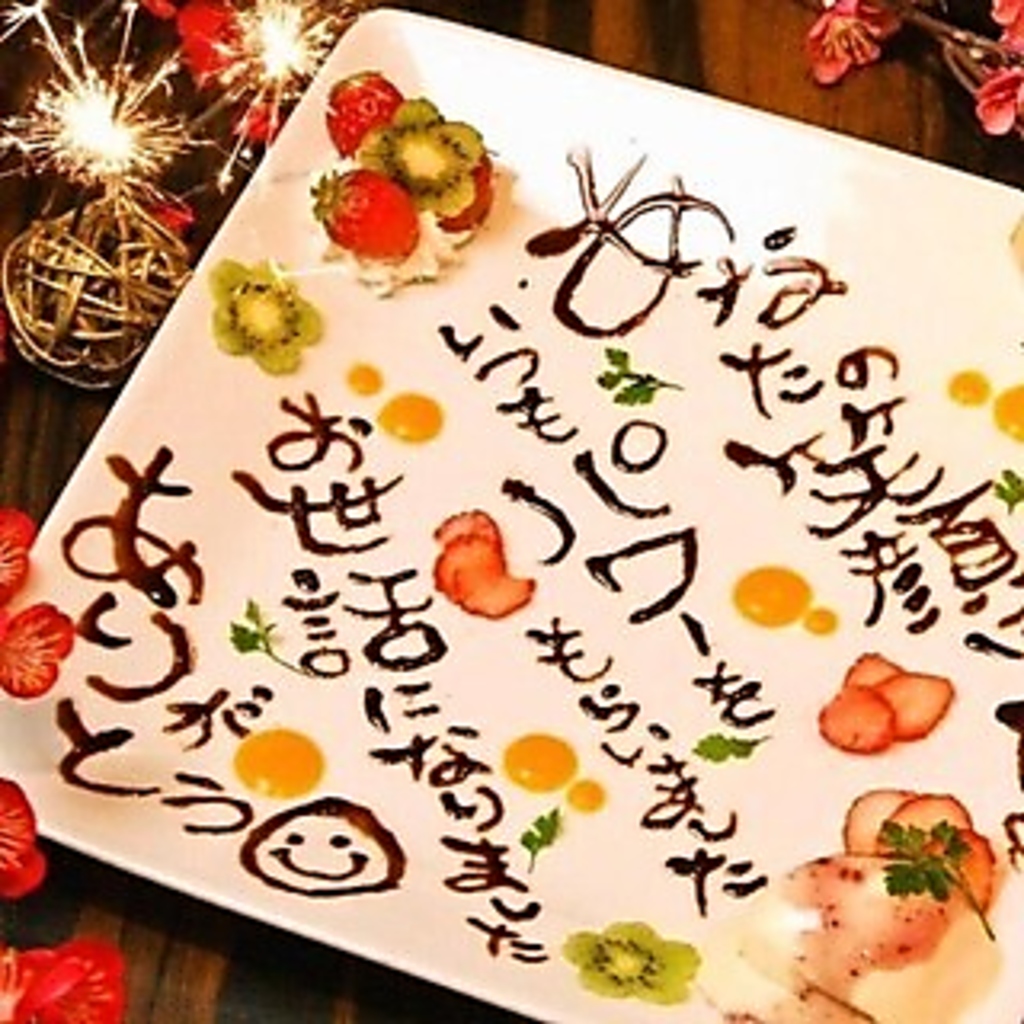 あなたの笑顔
いつもパワーを
もらいました
お世話になりました
ありがとう